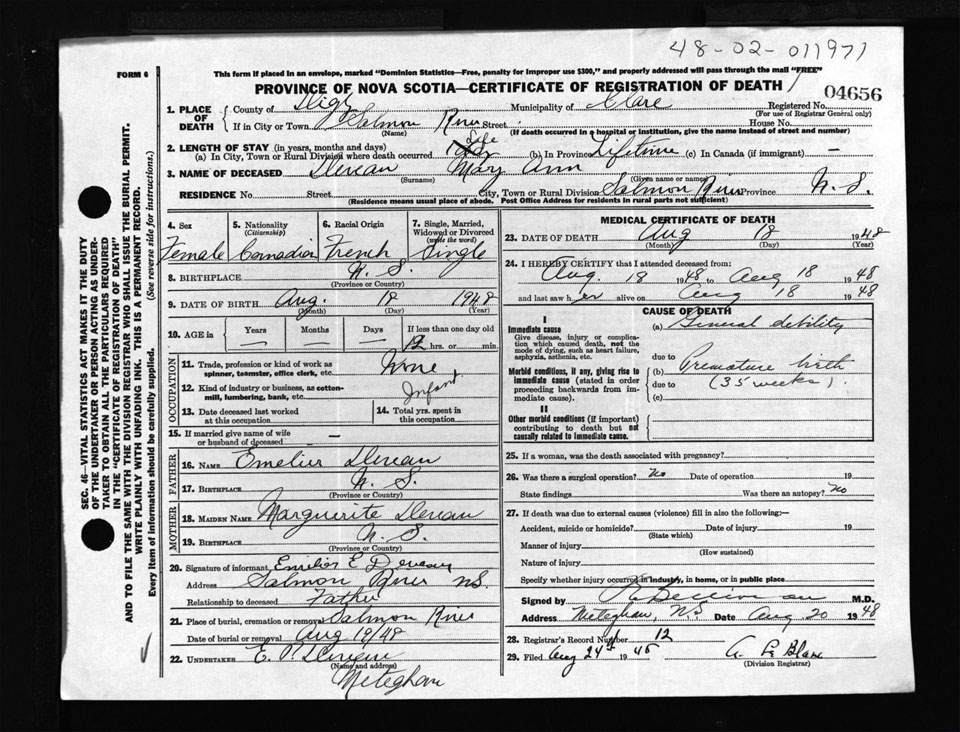 48-02-011971
FORM 6
This form if placed in an envelope, marked "Dominion Statistics—Free, penalty for improper use $300," and properly addressed will pass through the mail "FREE"
PROVINCE OF NOVA SCOTIA—CERTIFICATE OF REGISTRATION OF DEATH
04656
1. PLACE OF DEATH
County of Digby Municipality of Clare Registered No.
(For use of Registrar General only)
If in City or Town Salmon River Street House No.
(Name) (If death occurred in a hospital or institution, give the name instead of street and number)
2. LENGTH OF STAY (in years, months and days)
(a) In City, Town or Rural Division where death occurred Life (b) In Province Lifetime (c) In Canada (if immigrant) —
3. NAME OF DECEASED Deveau Mary Ann
(Surname) (Given name or names)
RESIDENCE No. Street City, Town or Rural Division Salmon River Province N.S.
(Residence means usual place of abode. Post Office Address for residents in rural parts not sufficient)
4. Sex
Female
5. Nationality (Citizenship)
Canadian
6. Racial Origin
French
7. Single, Married, Widowed or Divorced (write the word)
Single
8. BIRTHPLACE N. S.
(Province or Country)
9. DATE OF BIRTH Aug. 18 1948
(Month) (Day) (Year)
10. AGE in Years Months Days If less than one day old
— — — 12 hrs. or min.
OCCUPATION
11. Trade, profession or kind of work as spinner, teamster, office clerk, etc. None
12. Kind of industry or business, as cotton-mill, lumbering, bank, etc. Infant
13. Date deceased last worked at this occupation
14. Total yrs. spent in this occupation
15. If married give name of wife or husband of deceased —
FATHER
16. NAME Emelier Deveau
17. BIRTHPLACE N. S.
(Province or Country)
MOTHER
18. MAIDEN NAME Marguerite Deveau
19. BIRTHPLACE N. S.
(Province or Country)
20. Signature of informant E Deveau
Address Salmon River N.S.
Relationship to deceased Father
21. Place of burial, cremation or removal Salmon River
Date of burial or removal Aug 19/48
22. UNDERTAKER E. P. Deveau
(Name and address)
Meteghan
MEDICAL CERTIFICATE OF DEATH
23. DATE OF DEATH Aug 18 1948
(Month) (Day) (Year)
24. I HEREBY CERTIFY that I attended deceased from:
Aug. 18 1948 to Aug 18 1948
and last saw her alive on Aug 18 1948
CAUSE OF DEATH
I
Immediate cause
Give disease, injury or complication which caused death, not the mode of dying, such as heart failure, asphyxia, asthenia, etc.
(a) General debility
due to
Morbid conditions, if any, giving rise to immediate cause (stated in order proceeding backwards from immediate cause).
(b) Premature birth
due to (35 weeks).
(c)
II
Other morbid conditions (if important) contributing to death but not causally related to immediate cause.
25. If a woman, was the death associated with pregnancy?
26. Was there a surgical operation? No Date of operation 19
State findings Was there an autopsy? No
27. If death was due to external causes (violence) fill in also the following:—
Accident, suicide or homicide? Date of injury 19
(State which)
Manner of injury
(How sustained)
Nature of injury
Specify whether injury occurred in industry, in home, or in public place
Signed by M.D.
Address Meteghan, N.S Date Aug 20 1948
28. Registrar's Record Number 12
29. Filed Aug 24th 1948
(Division Registrar)
SEC. 46—VITAL STATISTICS ACT MAKES IT THE DUTY OF THE UNDERTAKER OR PERSON ACTING AS UNDERTAKER TO OBTAIN ALL THE PARTICULARS REQUIRED IN THE "CERTIFICATE OF REGISTRATION OF DEATH" AND TO FILE THE SAME WITH THE DIVISION REGISTRAR WHO SHALL ISSUE THE BURIAL PERMIT.
WRITE PLAINLY WITH UNFADING INK. THIS IS A PERMANENT RECORD.
Every item of information should be carefully supplied. (See reverse side for instructions.)